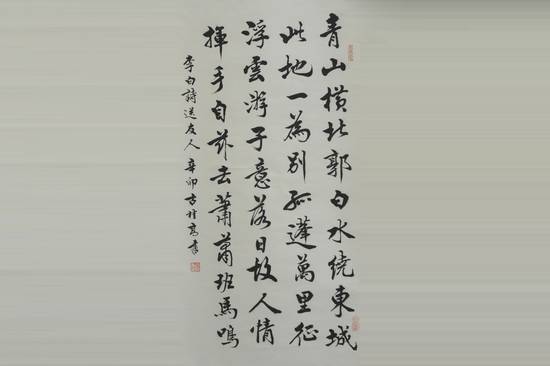 青山橫北郭白水繞東城
此地一為別孤蓬萬里征
浮雲游子意落日故人情
揮手自茲去蕭蕭班馬鳴
李白詩送友人辛卯古桂高書